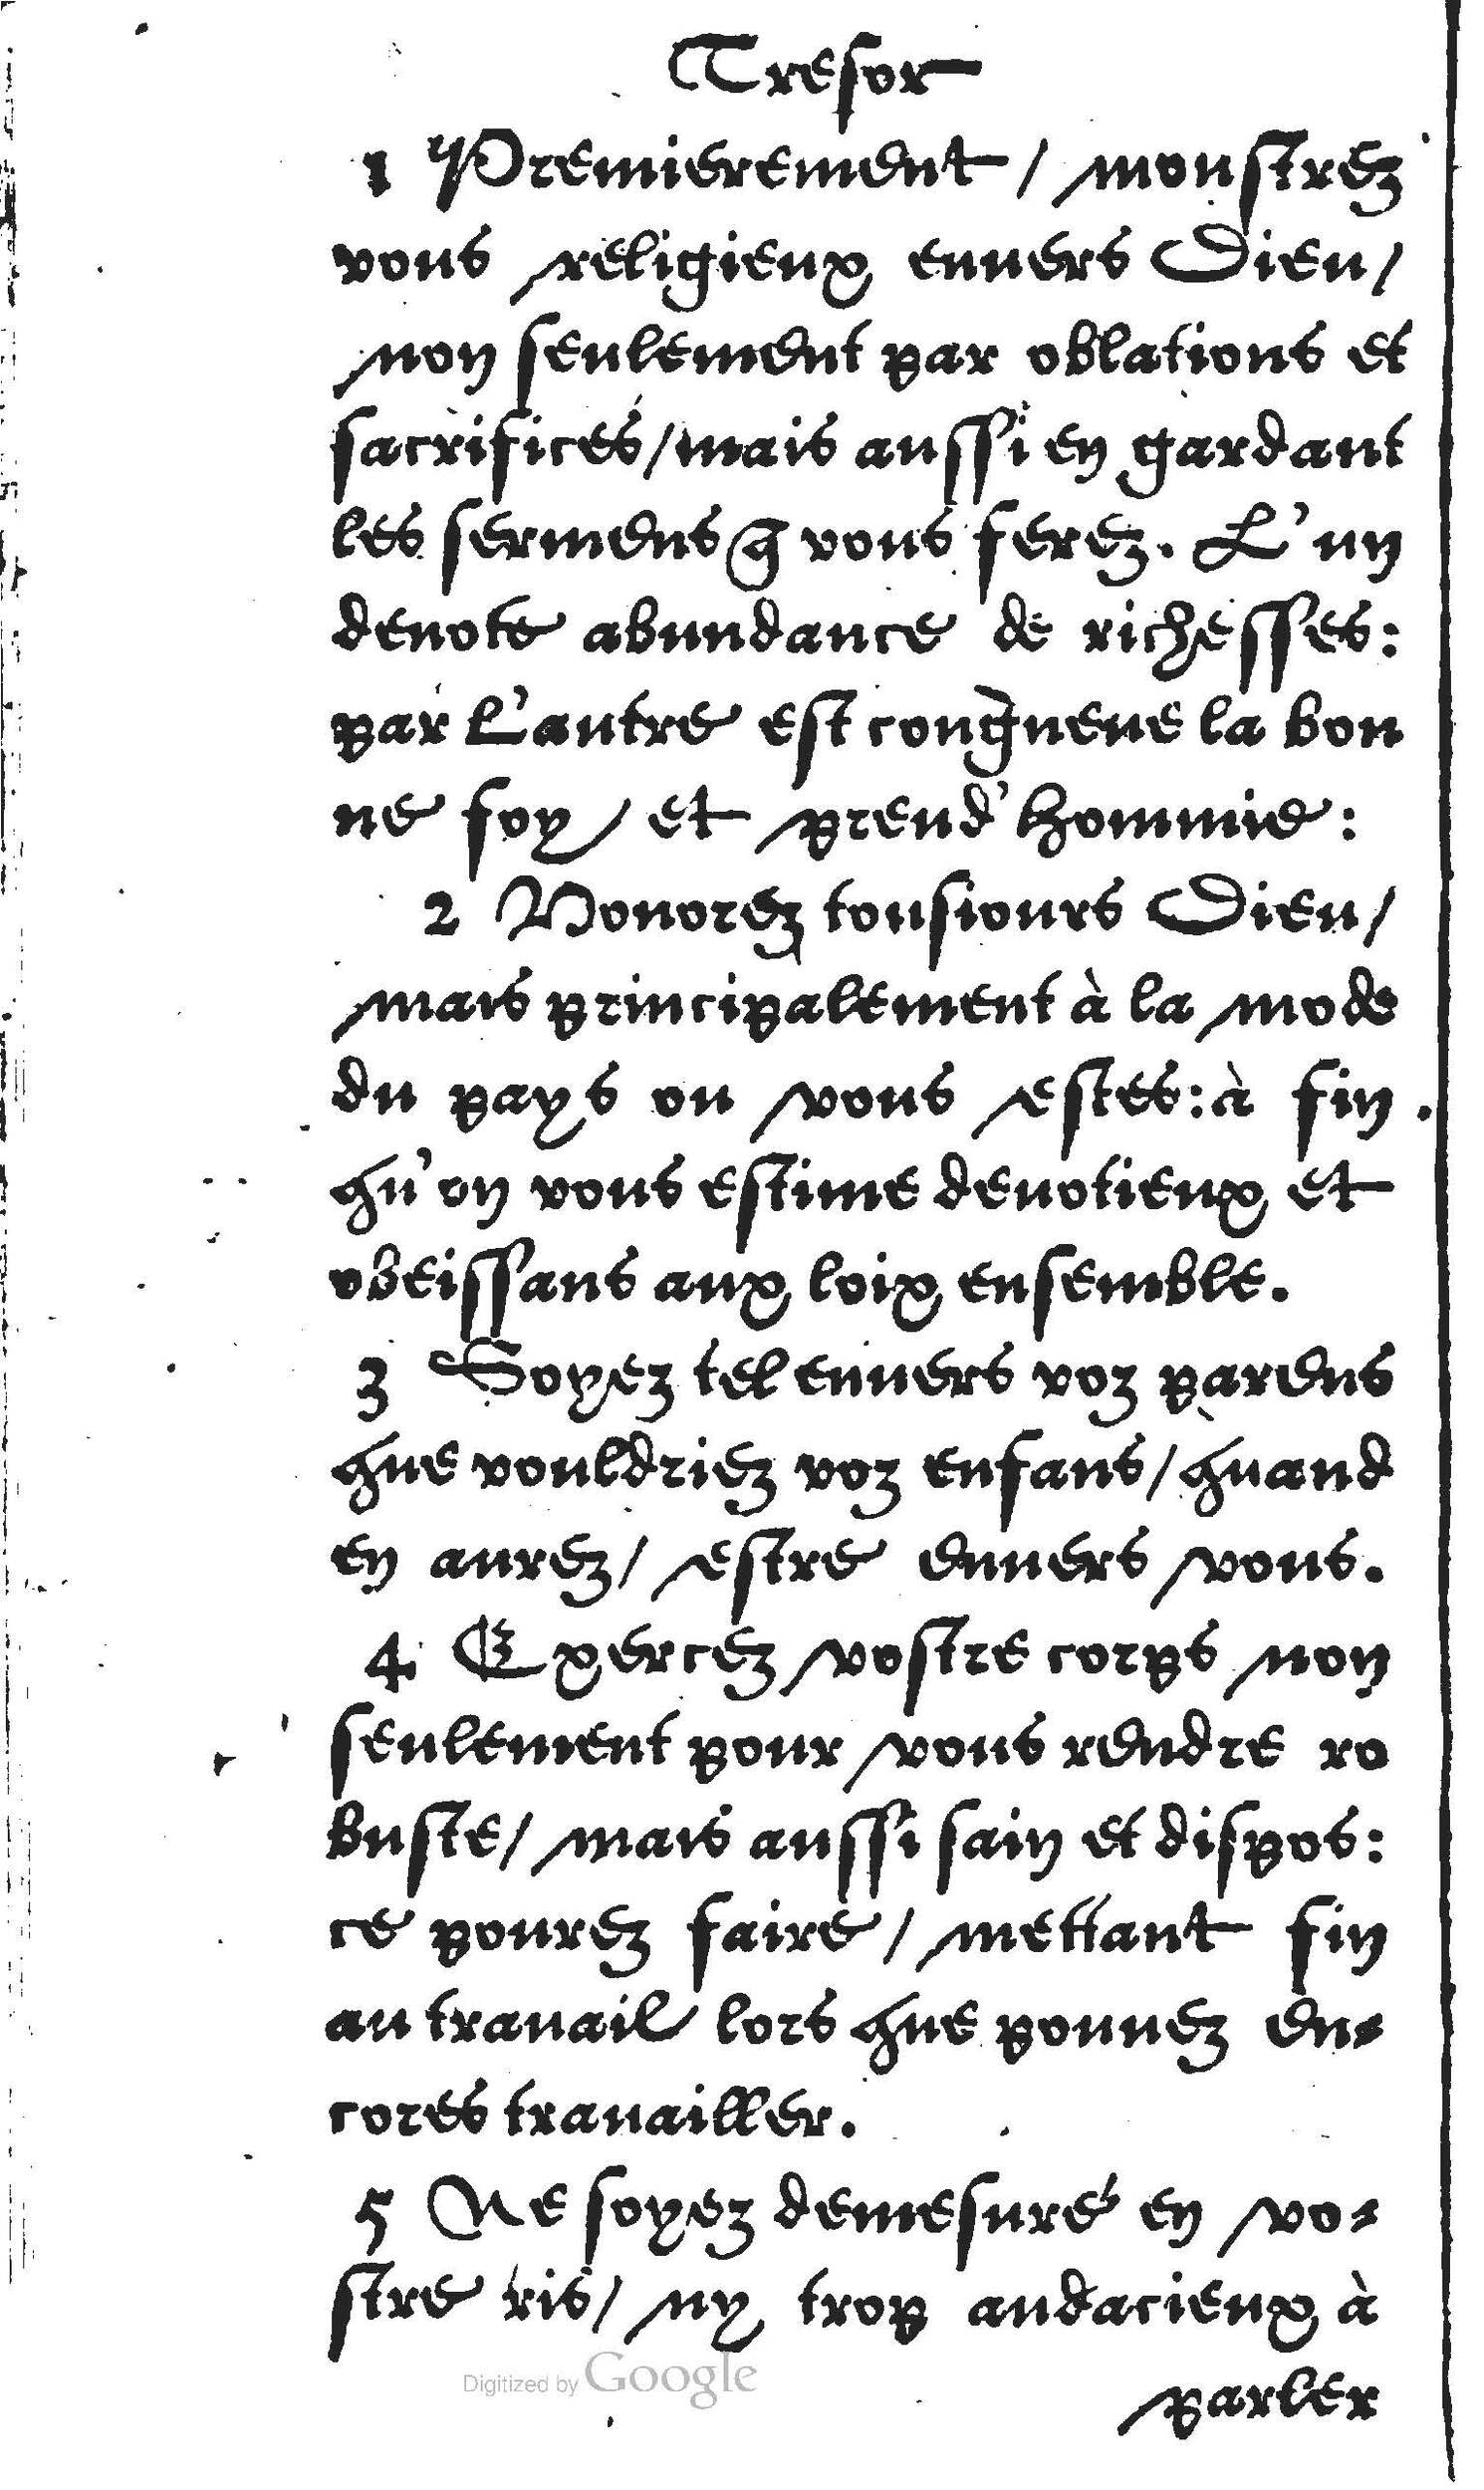 Tresor
1 Premierement / monstrez
vous religieux enuers Dieu /
non seulement par oblations et
sacrifices / mais aussi en gardant
les sermens q̃ vous ferez. L'un
denote abundance de richesses :
par L'autre est congneue la bon
ne foy / et preud'hommie :
2 Honorez tousiours Dieu /
mais principalement à la mode
du pays ou vous estes : à fin
qu'on vous estime deuotieux et
obeissans aux loix ensemble.
3 Soyez tel enuers voz parens
que vouldriez voz enfans / quand
en aurez / estre enuers vous.
4 Exercez vostre corps non
seulement pour vous rendre ro
buste / mais aussi sain et dispos :
ce pourez faire / mettant fin
au trauail lors que pouuez en-
cores trauailler.
5 Ne soyez demesuré en vo-
stre ris / ny trop audacieux à
parler
Digitized by Google